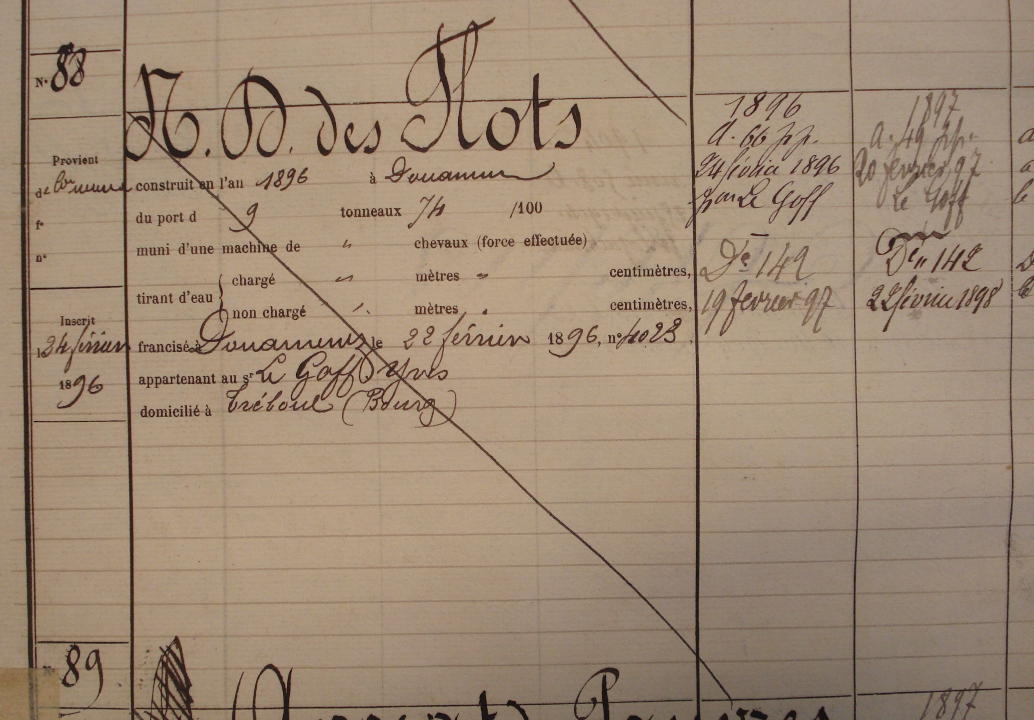 N° 88
N. D. des Flots
Provient
de
f°
n°
Inscrit
l 24 février
1896
construit en l'an 1896 à Douarnenez
du port d 9 tonneaux 74 /100
muni d'une machine de " chevaux (force effectuée)
tirant d'eau { chargé " mètres " centimètres,
non chargé " mètres " centimètres,
francisé à Douarnenez le 22 février 1896, n° 4023.
appartenant au sr Le Goff Yves
domicilié à Tréboul (Bourg)
1896
A. 66 pp.
24 février 1896
Le Goff
Dé 142
19 fevrier 97
1897
A. 49 pp.
20 fevrier 97
Le Goff
142
22 février 1898
89
1897